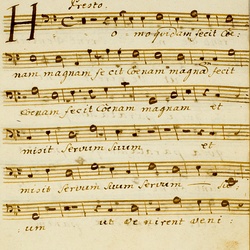 Presto.
Homo quidam fecit Coe:
nam magnam fecit Coenam magna fecit
Coenam fecit Coenam magnam et
misit Servum suum et
misit Servum suum Servum su:
um ut Venirent Veni: